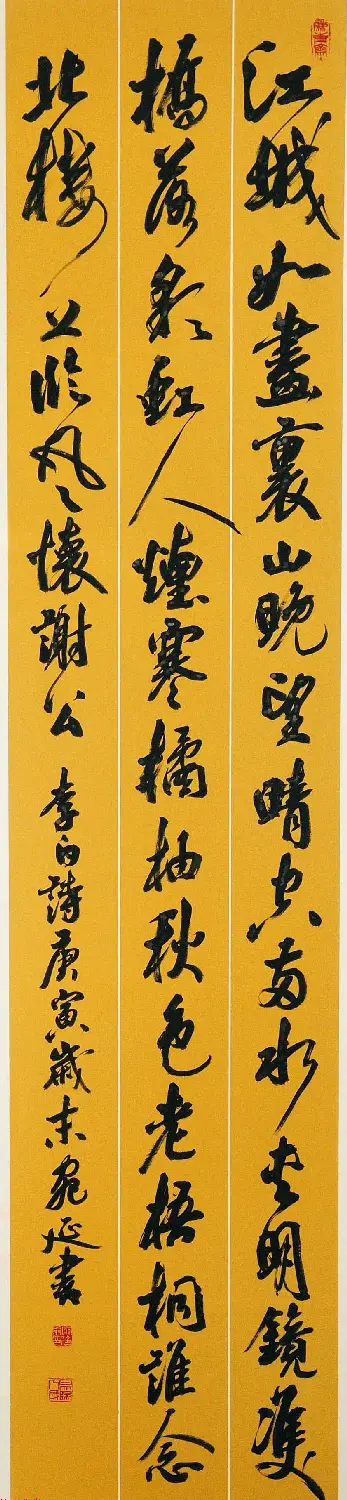 江城如畫裏山晚望晴空兩水夾明鏡雙
橋落彩虹人煙寒橘柚秋色老梧桐誰念
北樓上臨風懷謝公 李白詩庚寅歲末宛延書